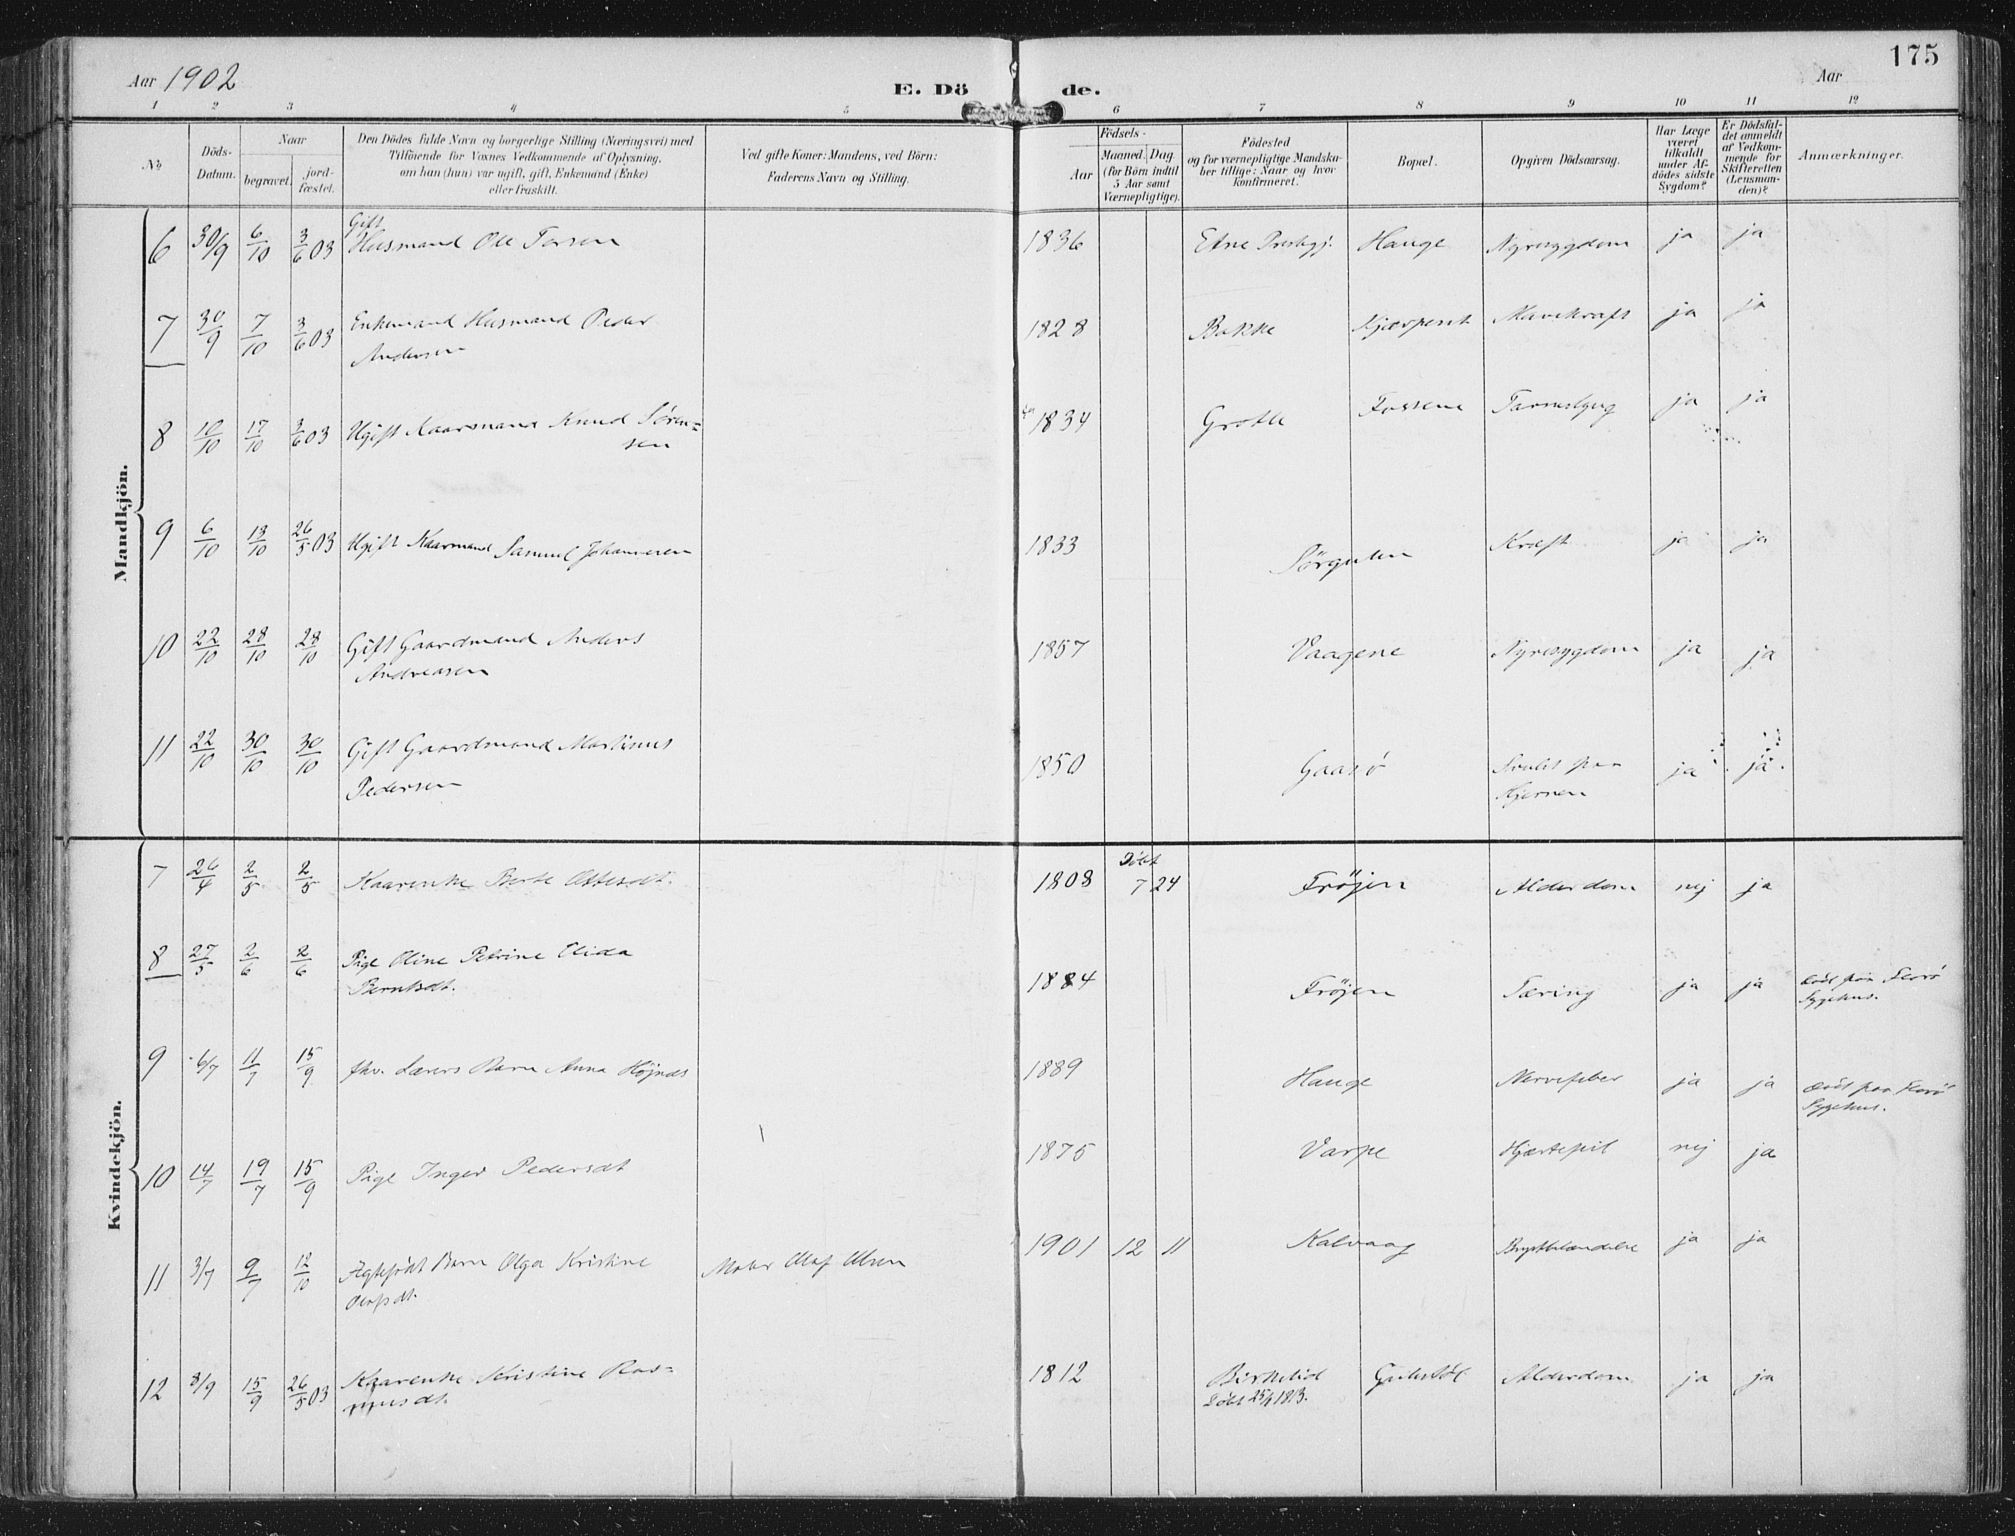 175
Aar 1902
E. Dö de.
Aar
1 2 3 4 5 6 7 8 9 10 11 12
No
Döds-
Datum.
Naar
begravet.
jord-
fæstet.
Den Dödes fulde Navn og borgerlige Stilling (Næringsvei) med
Tilföiende for Voxnes Vedkommende af Oplysning,
om han (hun) var ugift, gift, Enkemand (Enke)
eller fraskilt.
Ved gifte Koner: Mandens, ved Börn:
Faderens Navn og Stilling.
Födsels-
Aar
Maaned. Dag.
(for Börn indtil
5 Aar samt
Værnepligtige).
Födested
og for værnepligtige Mandska-
ber tillige: Naar og hvor
konfirmeret.
Bopæl.
Opgiven Dödsaarsag.
Har Læge
været
tilkaldt
under Af-
dödes sidste
Sygdom?
Er Dödsfal-
det anmeldt
af Vedkom-
mende for
Skifteretten
(Lensman-
den)?
Anmærkninger.
Mandkjön.
Gift
6 30/9 6/10 3/6 03 Husmand Ole Torsen 1836 Etne Prestgj. Hauge Nyresygdom ja ja
7 30/9 7/10 3/6 03 Enkemand Husmand Peder 1828 Bakke Mavekræft ja ja
Andersen
8 10/10 17/10 3/6 03 Ugift Kaarmand Knud Sören= 1834 Grotle Fossene ja ja
sen
9 6/10 13/10 26/5 03 Ugift Kaarmand Samuel Johannesen 1833 Sörgulen Kræft ja ja
10 22/10 28/10 28/10 Gift Gaardmand Anders 1857 Vaagene Nyresygdom ja ja
Andreasen
11 22/10 30/10 30/10 Gift Gaardmand Martinus 1850 Gaasö Svulst paa ja ja
Pedersen Hjernen
Kvindekjön.
Döbt
7 26/4 2/5 2/5 Kaarenke Berte Ottesdt. 1808 7 24 Fröjen Alderdom nej ja
8 27/5 2/6 2/6 Pige Oline Petrine Elida 1884 Fröjen Tæring ja ja död paa Florö
Berntsdt. Sygehus.
9 6/7 11/7 15/9 fhv. Lærers Barn Anna Höjnæs 1889 Hauge Nervefeber ja ja död paa Florö
Sygehus.
10 14/7 19/7 15/9 Pige Inger Pedersdt 1875 Varpe Hjærtefeil nej ja
11 3/7 9/7 12/10 Ægtefödt Barn Olga Kristine Olaf Olsen 1901 12 11 Kalvaag Brystbetændelse ja ja
Olafsdt.
12 8/9 15/9 26/5 03 Kaarenke Kristine Ras= 1812 Birkelid Alderdom ja ja
musdt. Döbt 25/4 1813.